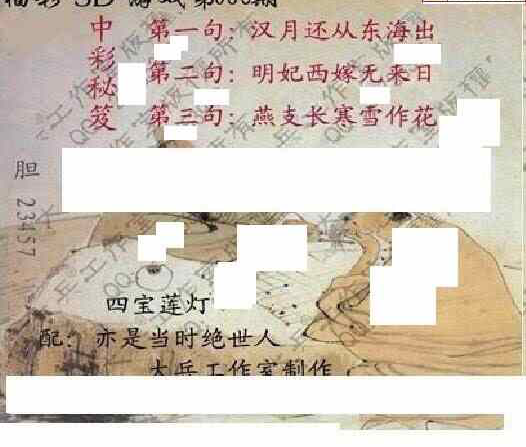 福彩3D 游戏第000期
中彩秘笈
第一句：汉月还从东海出
第二句：明妃西嫁无来日
第三句：燕支长寒雪作花
胆 23457
四宝莲灯
配：亦是当时绝世人
大兵工作室制作